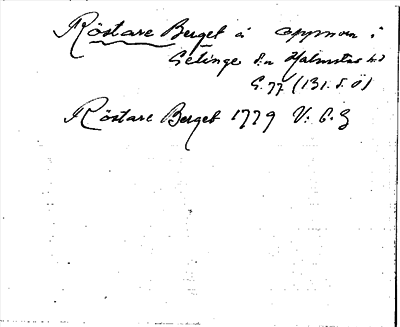 Röstare Berget å appnan i
Getinge sn Halmstad hd
G. 77 (131. S. Ö)
Röstare Berget 1779 V. C. G